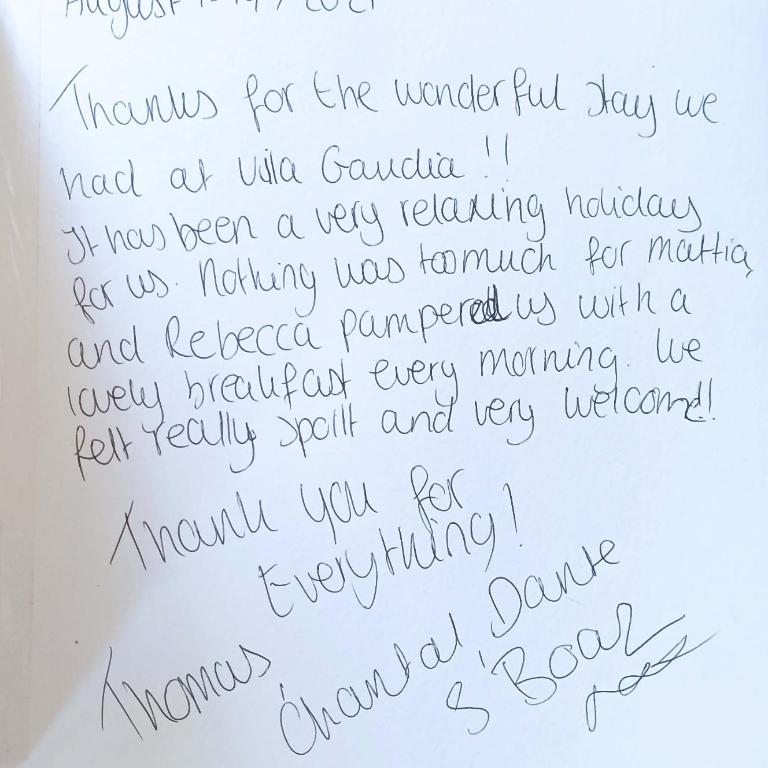 August
Thanks for the wonderful stay we
had at Villa Gaudia!!
It has been a very relaxing holiday
for us. Nothing was too much for Mattia,
and Rebecca pampered us with a
lovely breakfast every morning. We
felt really spoilt and very welcomed!
Thank you for
Everything!
Thomas
Chantal Dante
& Boaz